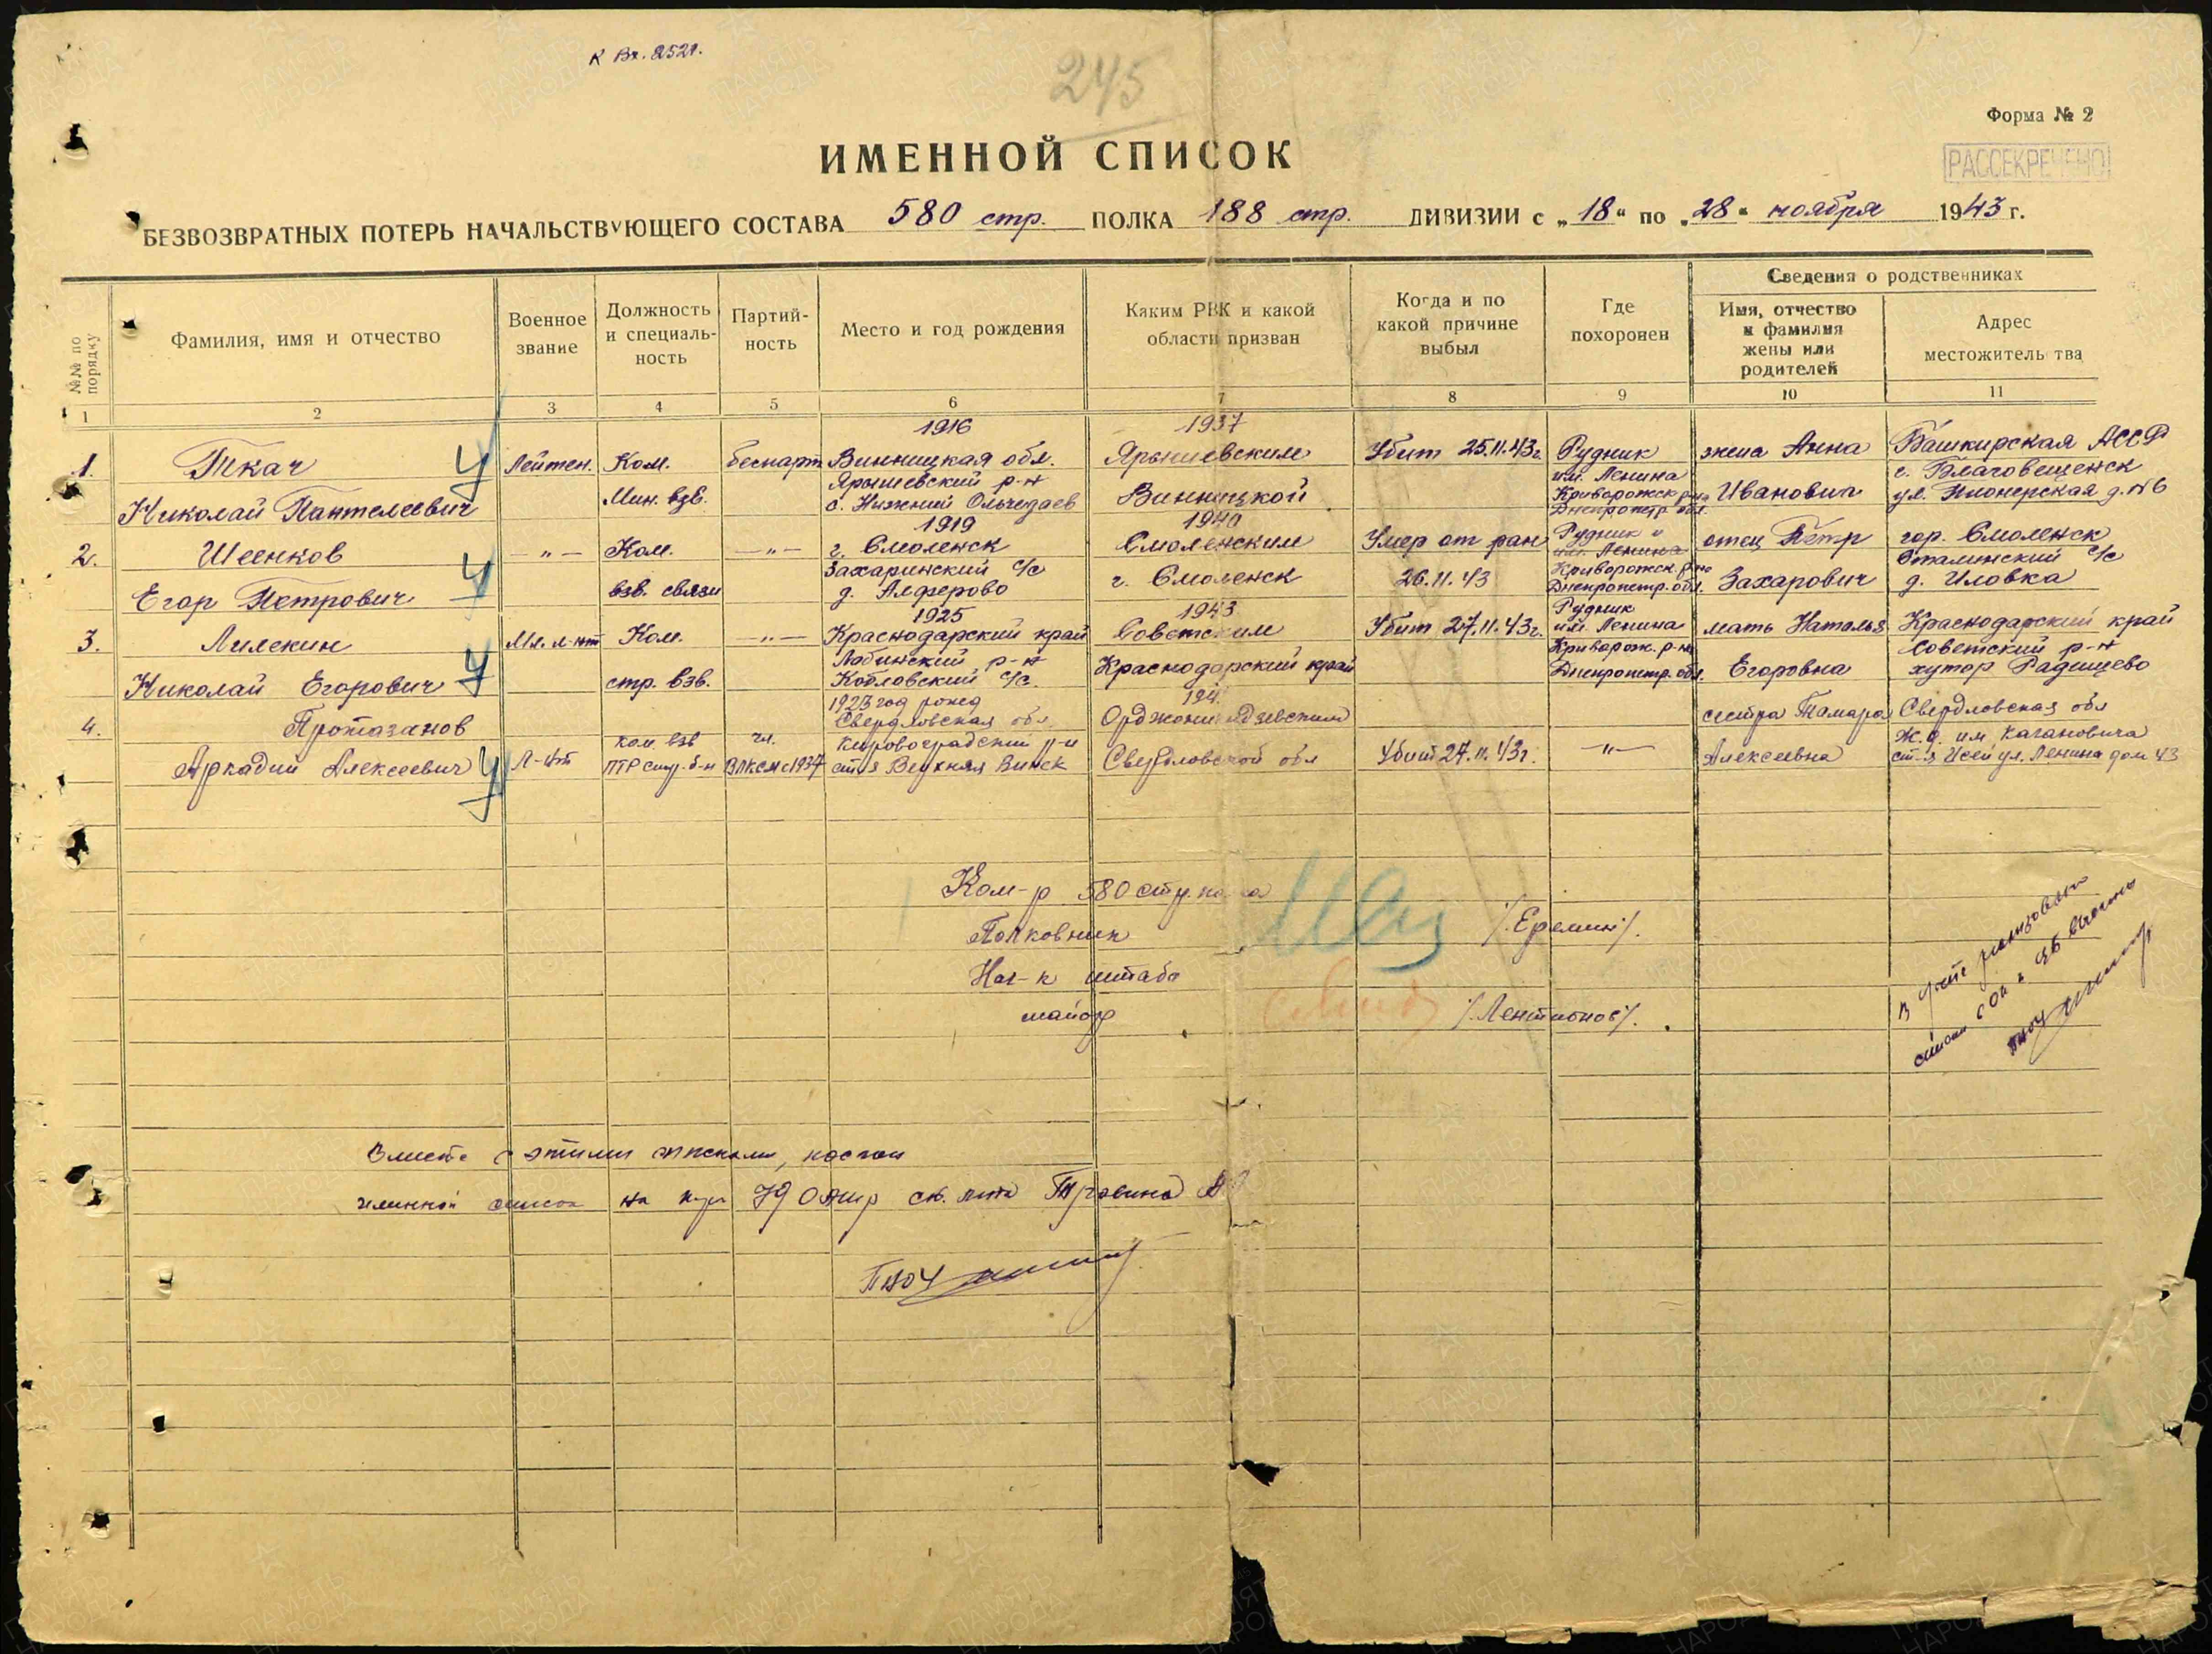 К Вх. 2521.
245
Форма № 2
РАССЕКРЕЧЕНО
ИМЕННОЙ СПИСОК
БЕЗВОЗВРАТНЫХ ПОТЕРЬ НАЧАЛЬСТВУЮЩЕГО СОСТАВА 580 стр. ПОЛКА 188 стр. ДИВИЗИИ с „18“ по „28“ ноября 1943 г.
№№ по порядку
Фамилия, имя и отчество
Военное звание
Должность и специаль-ность
Партий-ность
Место и год рождения
Каким РВК и какой области призван
Когда и по какой причине выбыл
Где похоронен
Сведения о родственниках
Имя, отчество и фамилия жены или родителей
Адрес местожительства
1 2 3 4 5 6 7 8 9 10 11
1.
Ткач
Николай Пантелеевич
Лейтен.
Ком.
Мин. взв.
беспарт
1916
Винницкая обл.
Ярышевский р-н
с. Нижний Ольчедаев
1937
Ярышевским
Винницкой
Убит 25.11.43г.
Рудник
им. Ленина
Криворожск р-на
Днепропетр. обл.
жена Анна
Ивановна
Башкирская АССР
с. Благовещенск
ул. Пионерская д. №6
2.
Шеенков
Егор Петрович
— „ —
Ком.
взв. связи
— „ —
1919
г. Смоленск
Захаринский с/с
д. Алферово
1940
Смоленским
г. Смоленск
Умер от ран
26.11.43
Рудник
им. Ленина
Криворожск. р-на
Днепропетр. обл.
отец Пётр
Захарович
гор. Смоленск
Сталинский с/с
д. Иловка
3.
Лилекин
Николай Егорович
Мл. л-нт
Ком.
стр. взв.
— „ —
1925
Краснодарский край
Лабинский р-н
Козловский с/с.
1943
Советским
Краснодарский край
Убит 27.11.43г.
Рудник
им. Ленина
Криворож. р-на
Днепропетр. обл.
мать Наталья
Егоровна
Краснодарский край
Советский р-н
хутор Радищево
4.
Протазанов
Аркадий Алексеевич
Л-нт
ком. взв
ПТР стр. б-н
чл.
ВЛКСМ с 1937
1923 год рожд
Свердловская обл.
Кировоградский р-н
194
Орджоникидзевским
Свердловской обл
Убит 27.11.43г.
— „ —
сестра Тамара
Алексеевна
Свердловская обл
ж.д. им. Кагановича
ул. Ленина дом 43
Ком-р 580 стр. полка
Полковник /Еремин/.
Нач-к штаба
майор
Вместе с этими списками, послан
именной список на
ПНО4